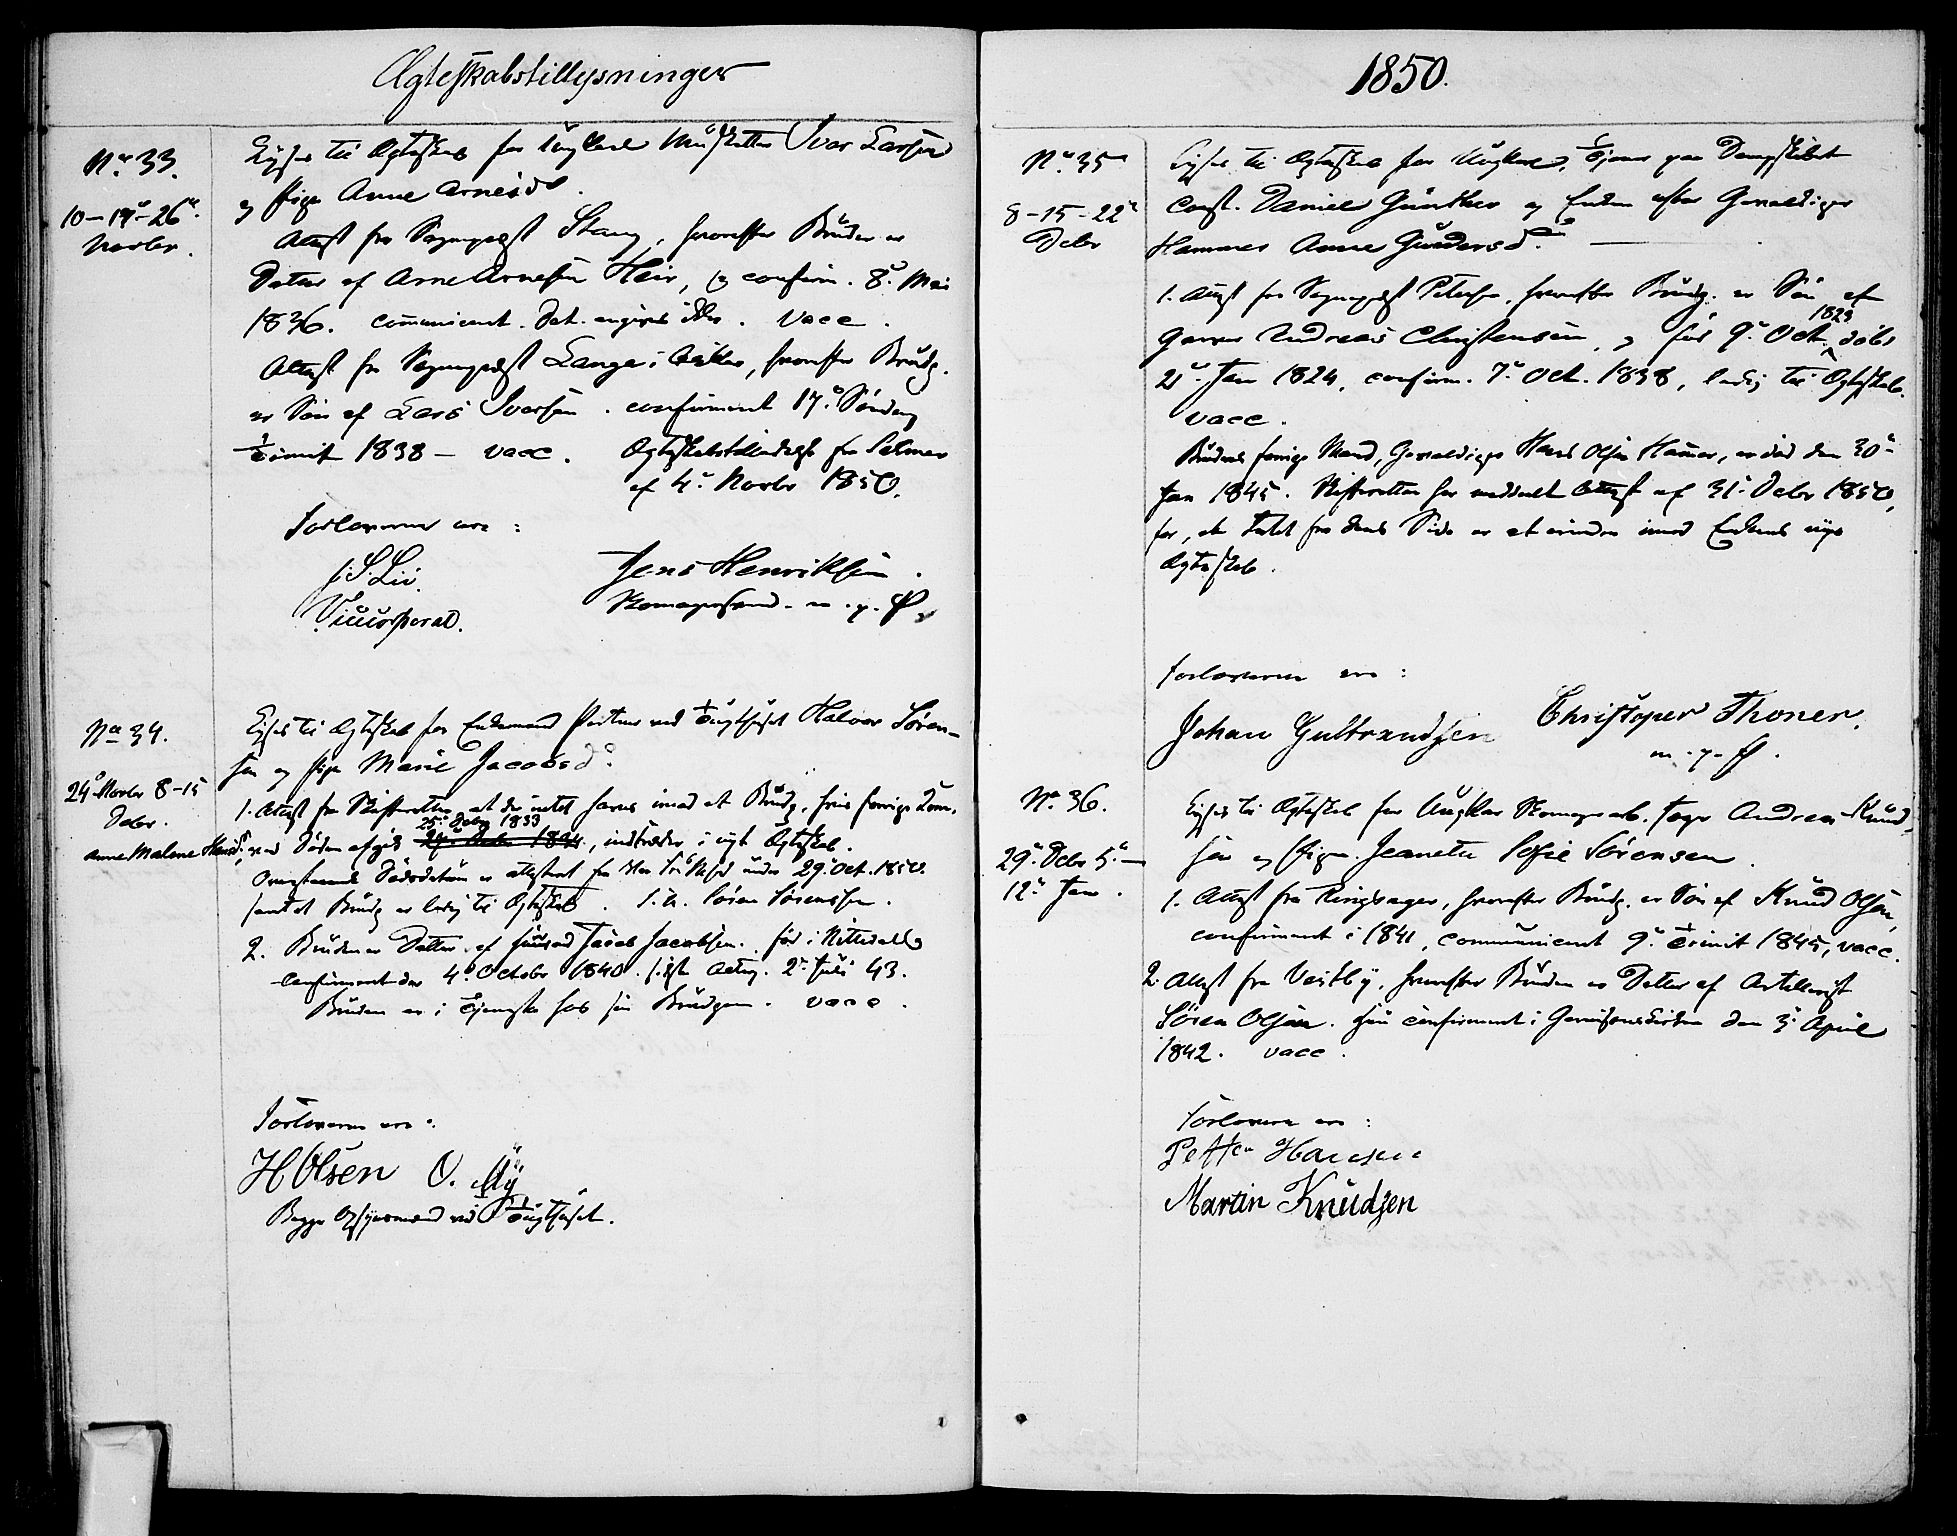 Ægteskabstillysninger
No 33.
10–17–26
Novbr.
Lyses til Ægteskab for Ungkarl Musketter Ivar Larsen
og Pige Anne Arnesd.
Attest fra Sognepræst Stang, hvorefter Bruden er
Datter af Arne Arnesen Heir, og confirm. 8. Mai
1836. communicant. Dat. angives ikke. Vacc.
Attest fra Sognepræst Lange i, hvorefter Brudg.
er Søn af Lars Iversen. confirmeret 17. Søndag
Trinit 1838 – vacc. Ægteskabstilladelse fra Selmer
af 4. Novbr 1850.
Forloverne ere:
S. Lii.
Vicecorporal.
Jens Henriksen.
Komagersvend. m.p.P.
No 34.
24 Novbr 8–15
Debr.
Anne Malene Hansd.
Lyses til Ægteskab for Enkemand Portner ved Tugthuset Halvor Søren-
sen og Pige Marie Jacobsd.
1. Attest fra Skifteretten, at der intet haves imod at Brudg., hvis forrige Kone
25 Debr 1833
ved Døden afgik 1844, indtræder i nyt Ægteskab.
Ovenstaaende Dødsdatum er attesteret fra under 29 Oct. 1850.
samt at Brudg er ledig til Ægteskab. S. H. Søren Sørensen.
2. Bruden er Datter af Jacob Jacobsen. fød i Nittedal
confirmeret den 4. Octobr 1840. 2. Juli 43.
Bruden er i Tjeneste hos sin Brudgom. vacc.
Forloverne ere:
H Olsen O. My
Begge Opsynsmænd ved Tugthuset.
1850.
No 35
8–15–22
Debr
Lyses til Ægteskab for Ungkarl, Tjener paa Dampskibet
Const. Daniel Günther og Enken efter Gevaldiger
Hammer Anne Gundersd.
1. Attest fra Sognepræst Petersen, hvorefter Brudg. er Søn af
Garver Andreas Christensen, og fød 9. Oct. 1823 døbt
21. Jan 1824, confirm. 7. Oct. 1838, ledig til Ægteskab.
vacc.
Brudens forrige Mand, Gevaldiger Hans Olsen Hammer, er død den 30
Jan 1845. Skifteretten har meddeelt Attest af 31. Debr 1850,
for, at Intet fra dens Side er at erindre imod Enkens nye
Ægteskab.
Forloverne ere:
Johan Gulbrandsen
Christoper Thoner.
m.p.P.
No 36.
29. Debr 5.–
12. Jan.
Lyses til Ægteskab for Ungkar Skomagerarb. Andreas Knud-
sen og Pigen Jeanette Sofie Sørensen.
1. Attest fra Ringsager, hvorefter Brudg. er Søn af Knud Olsen,
confirmeret i 1841, communiceret 9. Trinit 1845, vacc.
2. Attest fra Vestby, hvorefter Bruden er Datter af Artillerist
Søren Olsen. Hun confirmeret i Garnisonskirken den 3. April
1842. vacc.
Forloverne ere:
Petter Hansen
Martin Knudsen